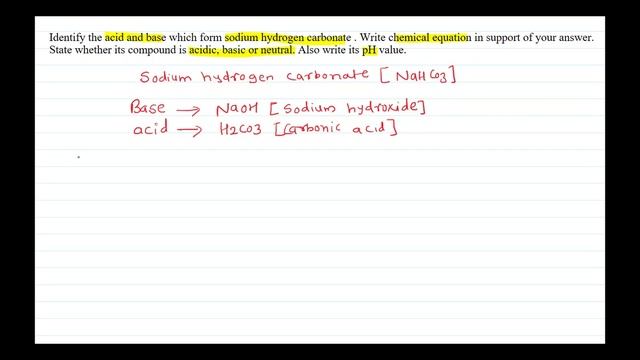 Identify the acid and base which form sodium hydrogen carbonate . Write chemical equation in support of your answer.
State whether its compound is acidic, basic or neutral. Also write its pH value.
Sodium hydrogen carbonate [NaHCO3]
Base → NaOH [Sodium hydroxide]
acid → H2CO3 [Carbonic acid]